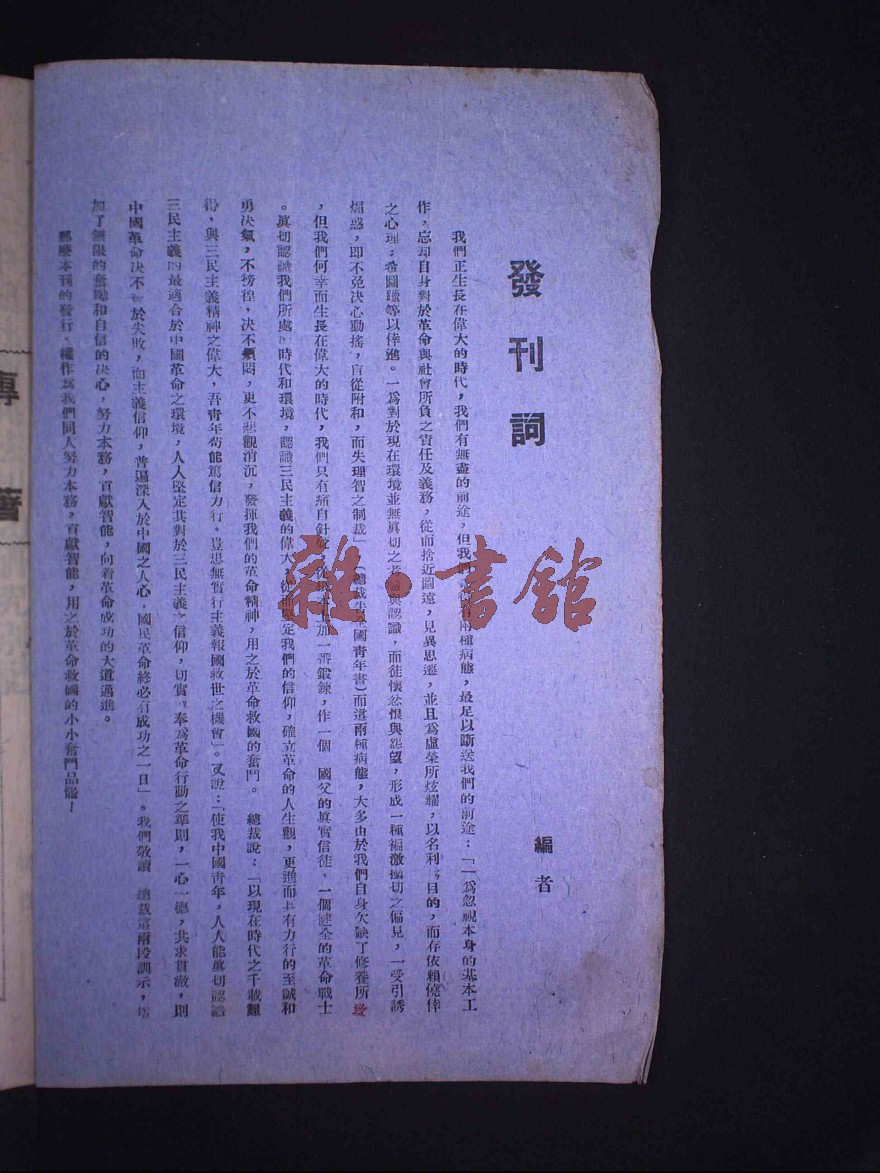 發刊詞
編者
我們正生長在偉大的時代，我們有無盡的前途，但我們 兩種病態，最足以斷送我們的前途：「一爲忽視本身的基本工
作，忘却自身對於革命與社會所負之責任及義務，從而捨近圖遠，見異思遷，並且爲虛榮所炫耀，以名利 目的，而存依賴僥倖
之心理；希圖躐等以倖進。一爲對於現在環境並無眞切之 與認識，而徒懷忿恨與怨望，形成一種褊激 切之偏見，一受引誘
煽惑，即不免決心動搖，盲從附和，而失理智之制裁」，（總裁告全國青年書）而這兩種病態，大多由於我們自身欠缺了修養所
，但我們何幸而生長在偉大的時代，我們只有痛自針砭， 加一番鍛鍊，作一個 國父的眞實信徒，一個健全的革命戰士
。眞切認識我們所處 時代和環境，認識三民主義的偉大，從而堅定我們的信仰，確立革命的人生觀，更進而具有力行的至誠和
勇決氣，不徬徨，决不煩悶，更不悲觀消沉，發揮我們的革命精神，用之於革命救國的奮鬥。 總裁說：「以現在時代之千載難
得，與三民主義精神之偉大，吾青年苟能篤信力行，豈患無實行主義報國救世之機會」。又說：「使我中國青年，人人能眞切認識
三民主義的最適合於中國革命之環境，人人堅定其對於三民主義之信仰，切實 奉爲革命行動之準則，一心一德，共求貫澈，則
中國革命决不 於失敗，而主義信仰，普遍深入於中國之人心，國民革命終必有成功之一日」。我們敬讀 總裁這兩段訓示，增
加了無限的奮勵和自信的决心，努力本務，貢獻智能，向着革命成功的大道邁進。
那麼本刊的發行，權作爲我們同人努力本務，貢獻智能，用之於革命救國的小小奮鬥品 ！
專
著
雜·書館